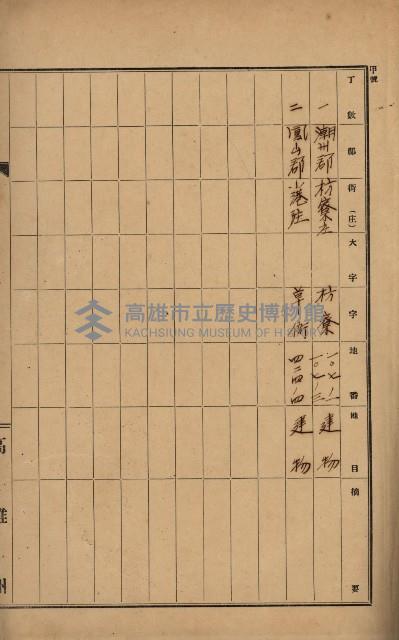 甲號
丁數 郡 街(庄) 大字 字 地番 地目 摘要
一 潮州郡 枋寮庄 枋寮 一〇七ノ一 一〇七ノ三 建物
二 鳳山郡 小港庄 草衙 四二四ノ四 建物
高雄州
高雄市立歷史博物館
KAOHSIUNG MUSEUM OF HISTORY